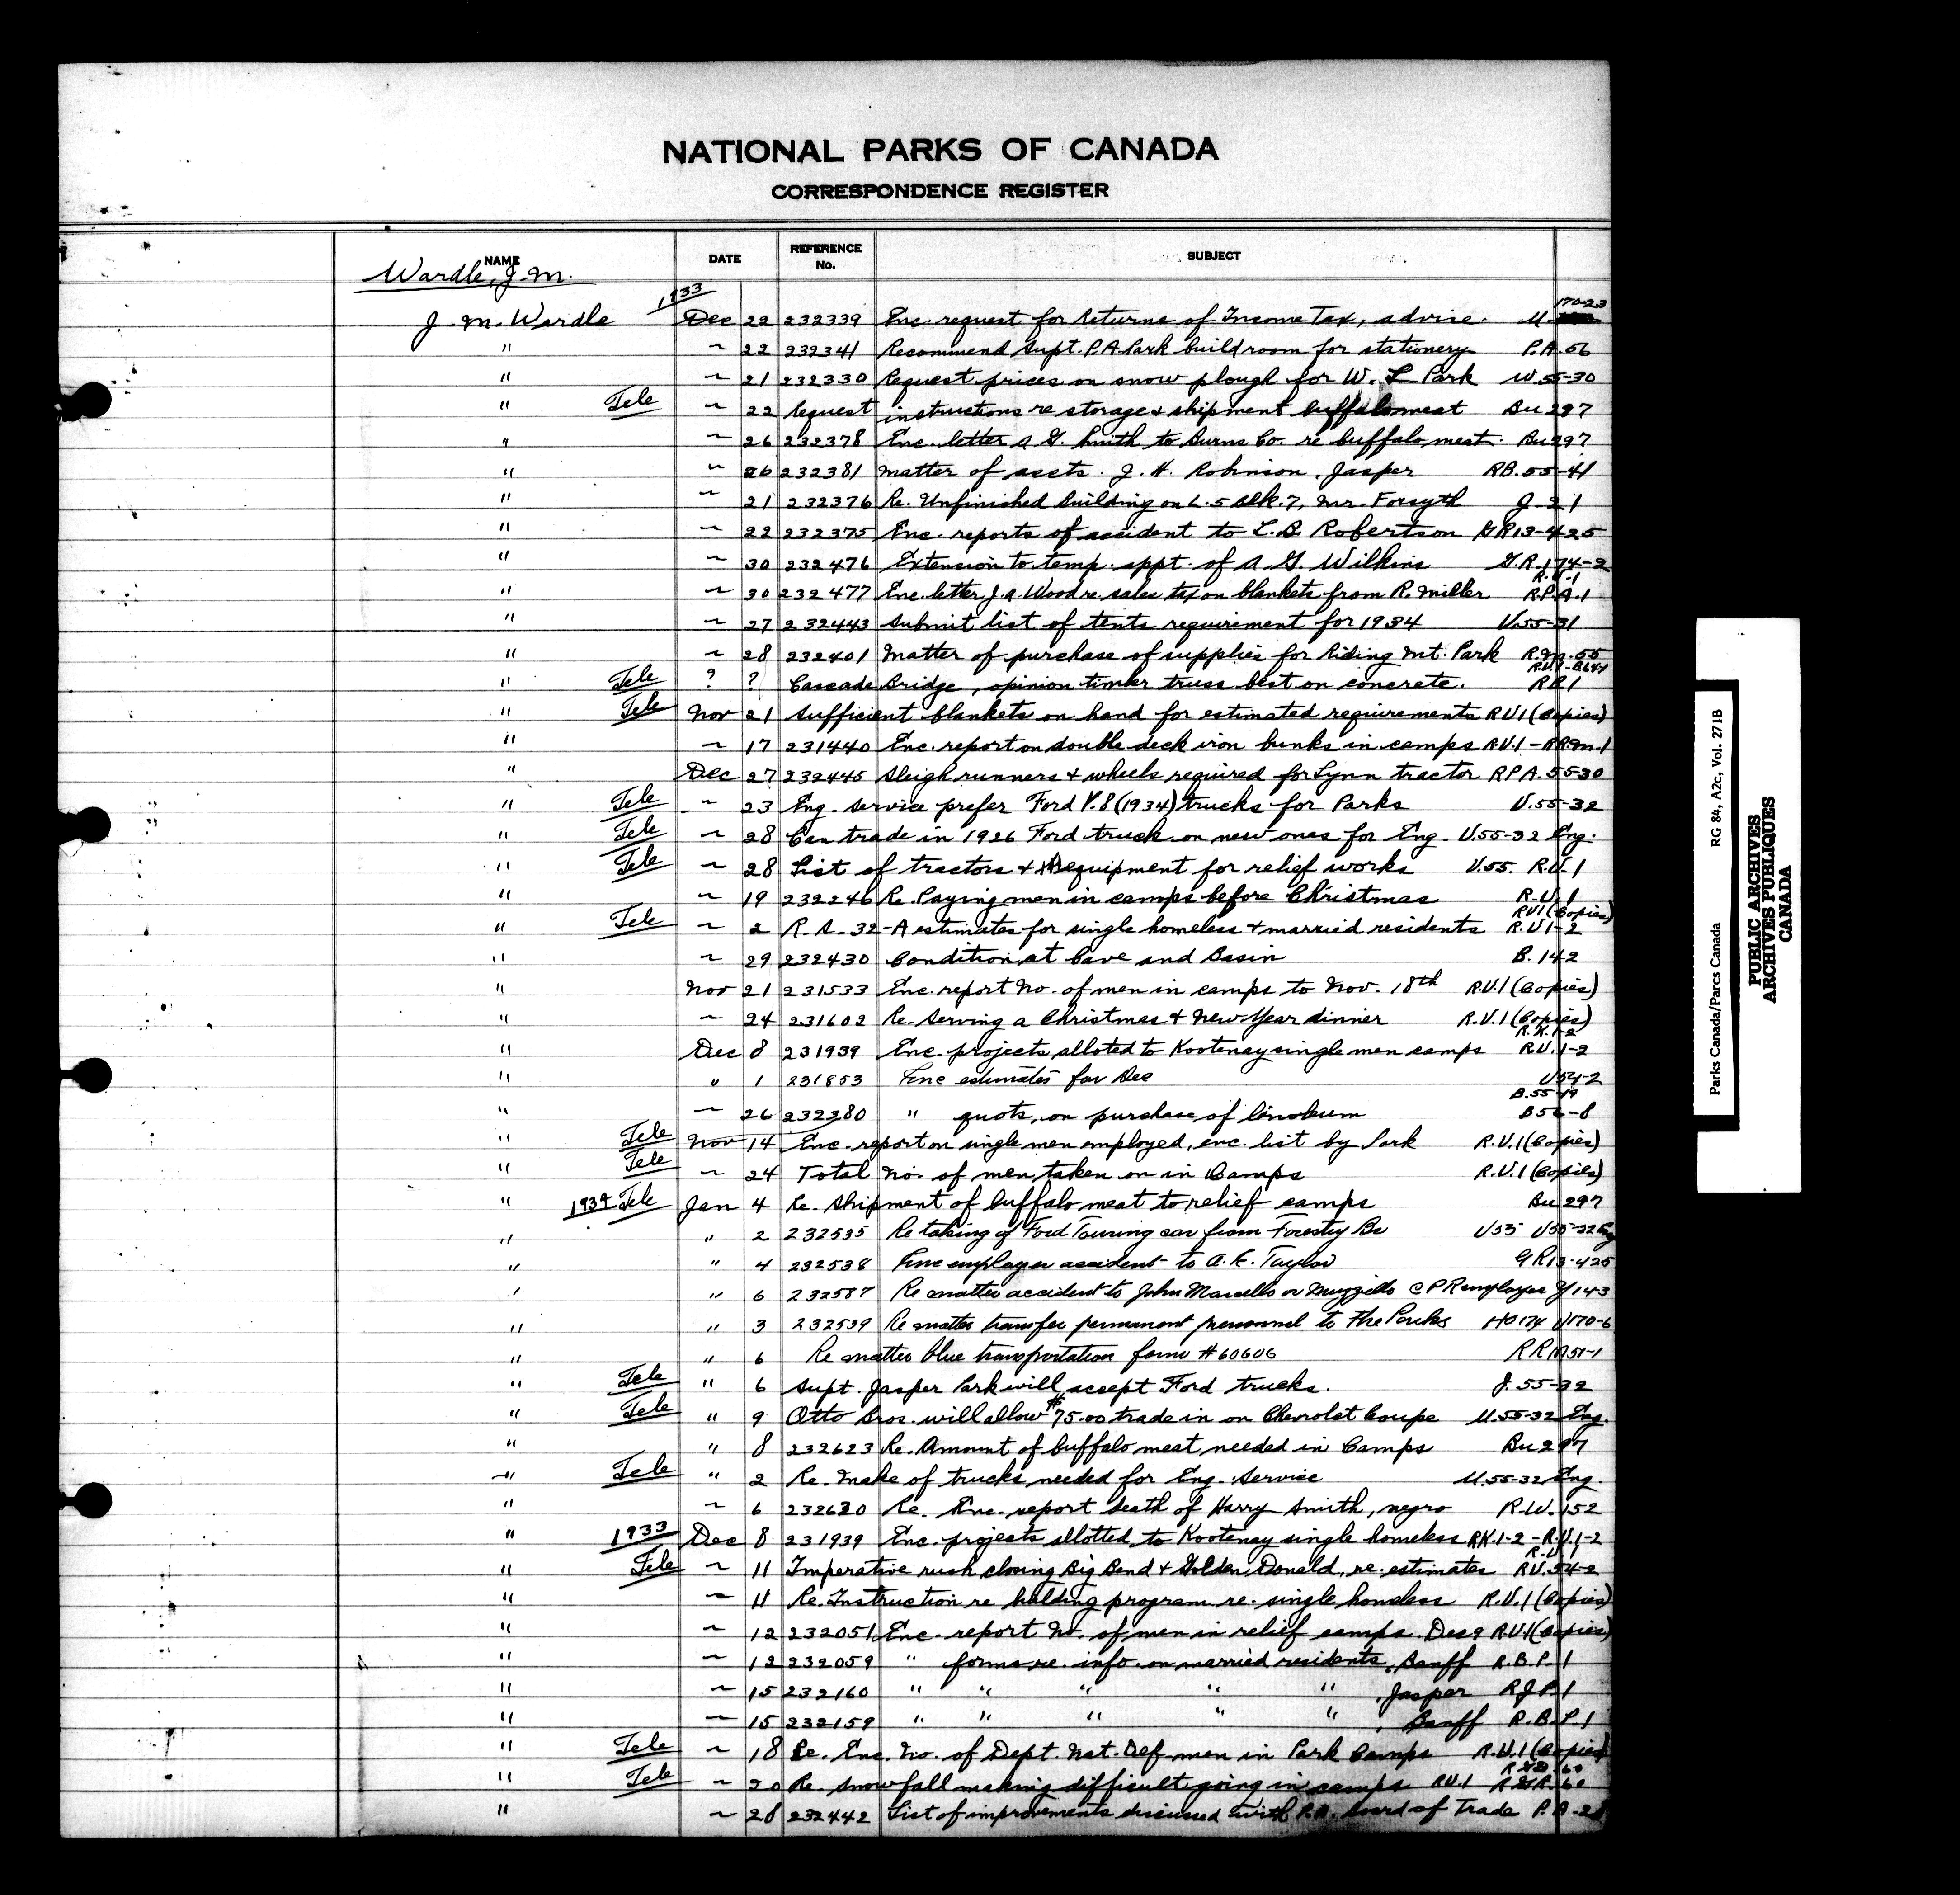 NATIONAL PARKS OF CANADA
CORRESPONDENCE REGISTER
NAME DATE REFERENCE No. SUBJECT
Wardle, J.M.
1933
J. M. Wardle Dec 22 232339 Enc. request for Returns of Income Tax, advise. U. 170-23
" ~ 22 232341 Recommend Supt. P.A. Park build room for stationery P.A. 56
" ~ 21 232330 Request prices on snow plough for W. L. Park W. 55-30
" Tele ~ 22 Request instructions re storage & shipment buffalo meat Bu 297
" ~ 26 232378 Enc. letter A. G. Smith to Burns Co. re buffalo meat. Bu 297
" ~ 26 232381 Matter of accts. J. H. Robinson, Jasper RB. 55-41
" ~ 21 232376 Re. Unfinished Building on L. 5 Blk. 7, Mr. Forsyth J-21
" ~ 22 232375 Enc. reports of accident to L. B. Robertson GR13-425
" ~ 30 232476 Extension to temp. appt. of A. G. Wilkins G.R. 174-2
" ~ 30 232477 Enc. letter J. A. Wood re sales tax on blankets from R. Miller R.U-1 R.P.A.1
" ~ 27 232443 Submit list of tents requirement for 1934 U.55-31
" ~ 28 232401 Matter of purchase of supplies for Riding Mt. Park R.M. 55
" Tele ? ? Cascade Bridge, opinion timber truss best on concrete. RB.1
" Tele Nov 21 Sufficient blankets on hand for estimated requirements R.U.1 (Copies)
" ~ 17 231440 Enc. report on double deck iron bunks in camps R.U.1 - R.R.M.1
" Dec 27 232445 Sleigh runners & wheels required for Lynn tractor R.P.A. 55-30
" Tele ~ 23 Eng. Service prefer Ford V.8 (1934) trucks for Parks U.55-32
" Tele ~ 28 Can trade in 1926 Ford truck on new ones for Eng. U.55-32 Eng.
" Tele ~ 28 List of tractors & equipment for relief works U.55. R.U.1
" ~ 19 232246 Re. Paying men in camps before Christmas R.U.1
" Tele ~ 2 R.A-32-A estimates for single homeless & married residents RU1 (Copies) R.U1-2
" ~ 29 232430 Condition at Cave and Basin B. 142
" Nov 21 231533 Enc. report No. of men in camps to Nov. 18th R.U.1 (Copies)
" ~ 24 231602 Re. Serving a Christmas & New Year dinner R.U.1 (Copies)
" Dec 8 231939 Enc. projects alloted to Kootenay single men camps R.K.1-2 R.U.1-2
" " 1 231853 Enc estimates for Dec U54-2
" ~ 26 232380 " quots, on purchase of linoleum B.55-19 B56-8
" Tele Nov 14 Enc. report on single men employed, enc. list by Park R.U.1 (Copies)
" Tele ~ 24 Total No. of men taken on in Camps R.U.1 (Copies)
" 1934 Tele Jan 4 Re. Shipment of buffalo meat to relief camps Bu 297
" " 2 232535 Re taking of Ford Touring car from Forestry Br U55 U55-32 Eng
" " 4 232538 Enc employee accident to A. E. Taylor GR13-425
" " 6 232587 Re matter accident to John Marcello or Muzzillo CPR employee Y143
" " 3 232539 Re matter transfer permanent personnel to the Parks HO174 U170-6
" " 6 Re matter blue transportation form #60606 RRM51-1
" Tele " 6 Supt. Jasper Park will accept Ford trucks. J. 55-32
" Tele " 9 Otto Bros. will allow $75.00 trade in on Chevrolet Coupe U.55-32 Eng.
" " 8 232623 Re. Amount of buffalo meat needed in Camps Bu 297
" Tele " 2 Re. Make of trucks needed for Eng. Service U.55-32 Eng.
" ~ 6 232620 Re. Enc. report death of Harry Smith, negro R.W. 152
" 1933 Dec 8 231939 Enc. projects allotted to Kootenay single homeless RK.1-2 - R.U.1-2
" Tele ~ 11 Imperative rush closing Big Bend & Golden Donald, re. estimates R.U.1 RU.54-2
" ~ 11 Re. Instruction re holding program re. single homeless R.U.1 (Copies)
" ~ 12 232051 Enc. report No. of men in relief camps Dec 9 R.U1 (Copies)
" ~ 12 232059 " forms re. info. on married residents, Banff R.B.P.1
" ~ 15 232160 " " " " " , Jasper RJP.1
" ~ 15 232159 " " " " " , Banff R.B.P.1
" Tele ~ 18 Re. Enc. No. of Dept. Nat. Def. men in Park Camps R.U.1 (Copies)
" Tele ~ 20 Re. Snow fall making difficult going in camps RU.1
" ~ 28 232442 List of improvements discussed with P.A. Board of Trade P.A-28
Parks Canada/Parcs Canada RG 84, A2c, Vol. 271B
PUBLIC ARCHIVES
ARCHIVES PUBLIQUES
CANADA